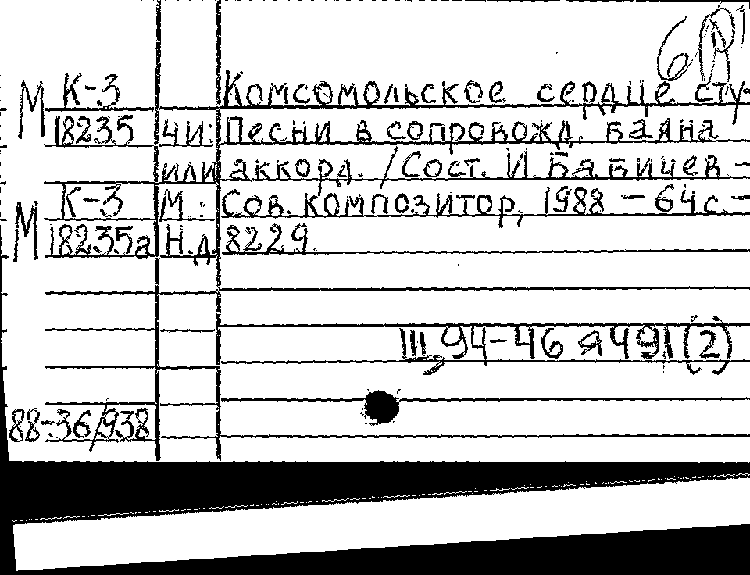 М К-3 Комсомольское сердце сту-
18235 чи: Песни в сопровожд. баяна
или аккорд. / Сост. И. Бабичев –
М К-3 М.: Сов. композитор, 1988 – 64 с. –
18235а Н.д. 8229.
Щ 94-46 я 491 (2)
88-36/938